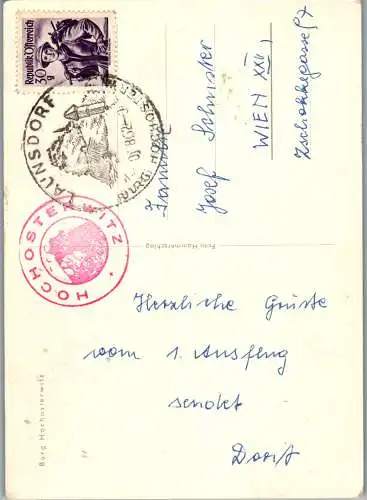 Republik Österreich
30
g
LAUNSDORF
BURG HOCHOSTERWITZ
HOCHOSTERWITZ
Familie
Josef Schuster
WIEN XXII,
Zschokkegasse 57
Foto Hammerschlag
Herzliche Grüße
vom 1. Ausflug
sendet
Dorit
Burg Hochosterwitz